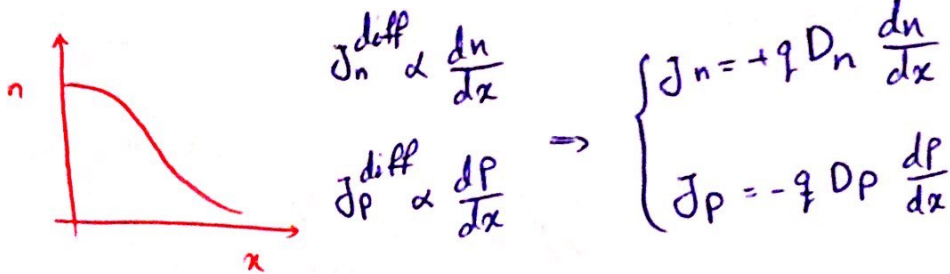 n
x
J_n^diff ∝ dn/dx
J_p^diff ∝ dp/dx
⇒
J_n = +q D_n dn/dx
J_p = -q D_p dp/dx